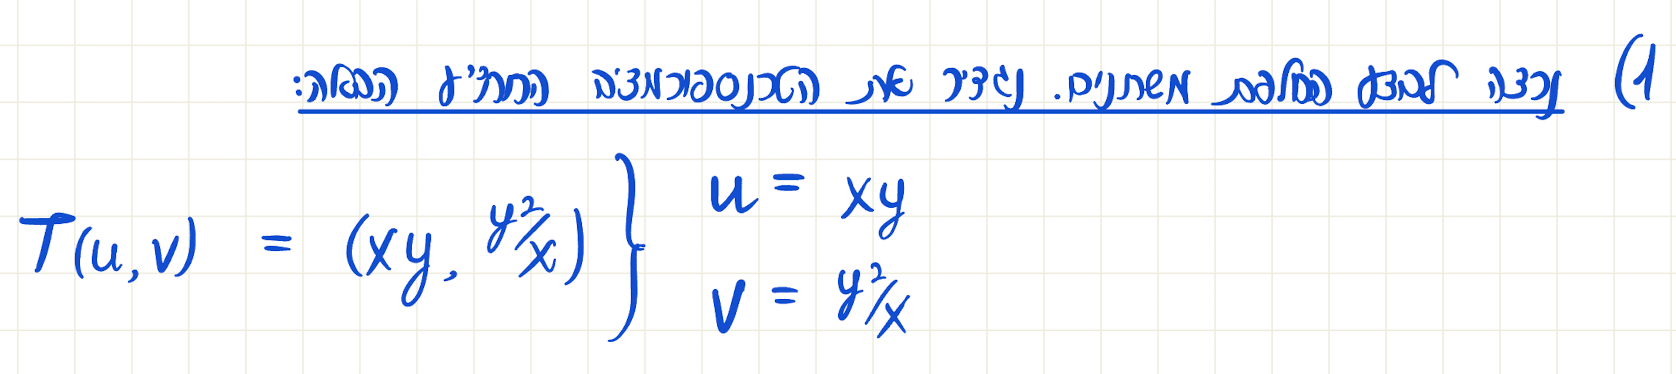 1) נרצה לבצע החלפת משתנים. נגדיר את הטרנספורמציה החח"ע הבאה:
T(u,v) = (xy, y²/x) } u = xy
v = y²/x